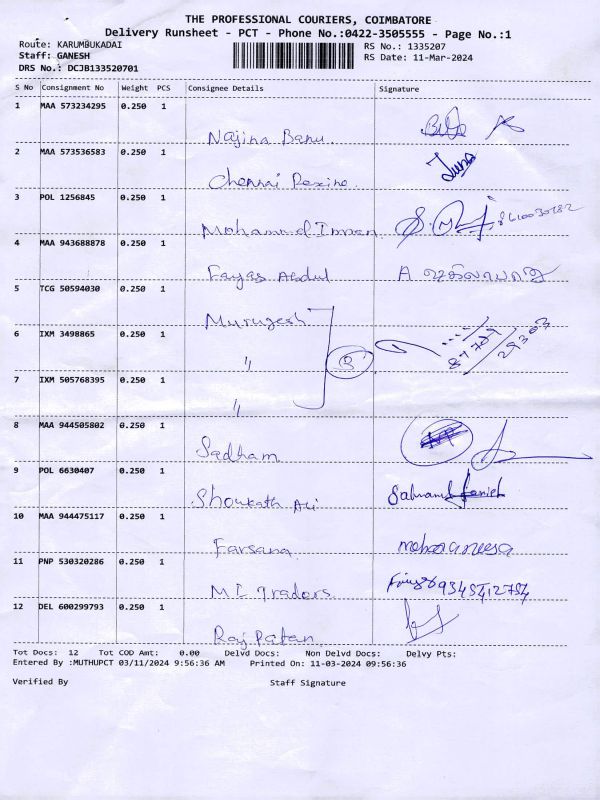 THE PROFESSIONAL COURIERS, COIMBATORE
Delivery Runsheet - PCT - Phone No.:0422-3505555 - Page No.:1
Route: KARUMBUKADAI RS No.: 1335207
Staff: GANESH RS Date: 11-Mar-2024
DRS No.: DCJB133520701
S No Consignment No Weight PCS Consignee Details Signature
1 MAA 573234295 0.250 1
Najina Banu
2 MAA 573536583 0.250 1
Chennai
3 POL 1256845 0.250 1
Mohammed Imran
4 MAA 943688878 0.250 1
Fayas Abdul A
5 TCG 50594030 0.250 1
Murugesh
6 IXM 3498865 0.250 1
" 3
7 IXM 505768395 0.250 1
"
8 MAA 944505802 0.250 1
Sadham
9 POL 6630407 0.250 1
Shoukath Ali
10 MAA 944475117 0.250 1
Farsana
11 PNP 530320286 0.250 1
M I Traders
12 DEL 600299793 0.250 1
Raj Patan
Tot Docs: 12 Tot COD Amt: 0.00 Delvd Docs: Non Delvd Docs: Delvy Pts:
Entered By :MUTHUPCT 03/11/2024 9:56:36 AM Printed On: 11-03-2024 09:56:36
Verified By Staff Signature